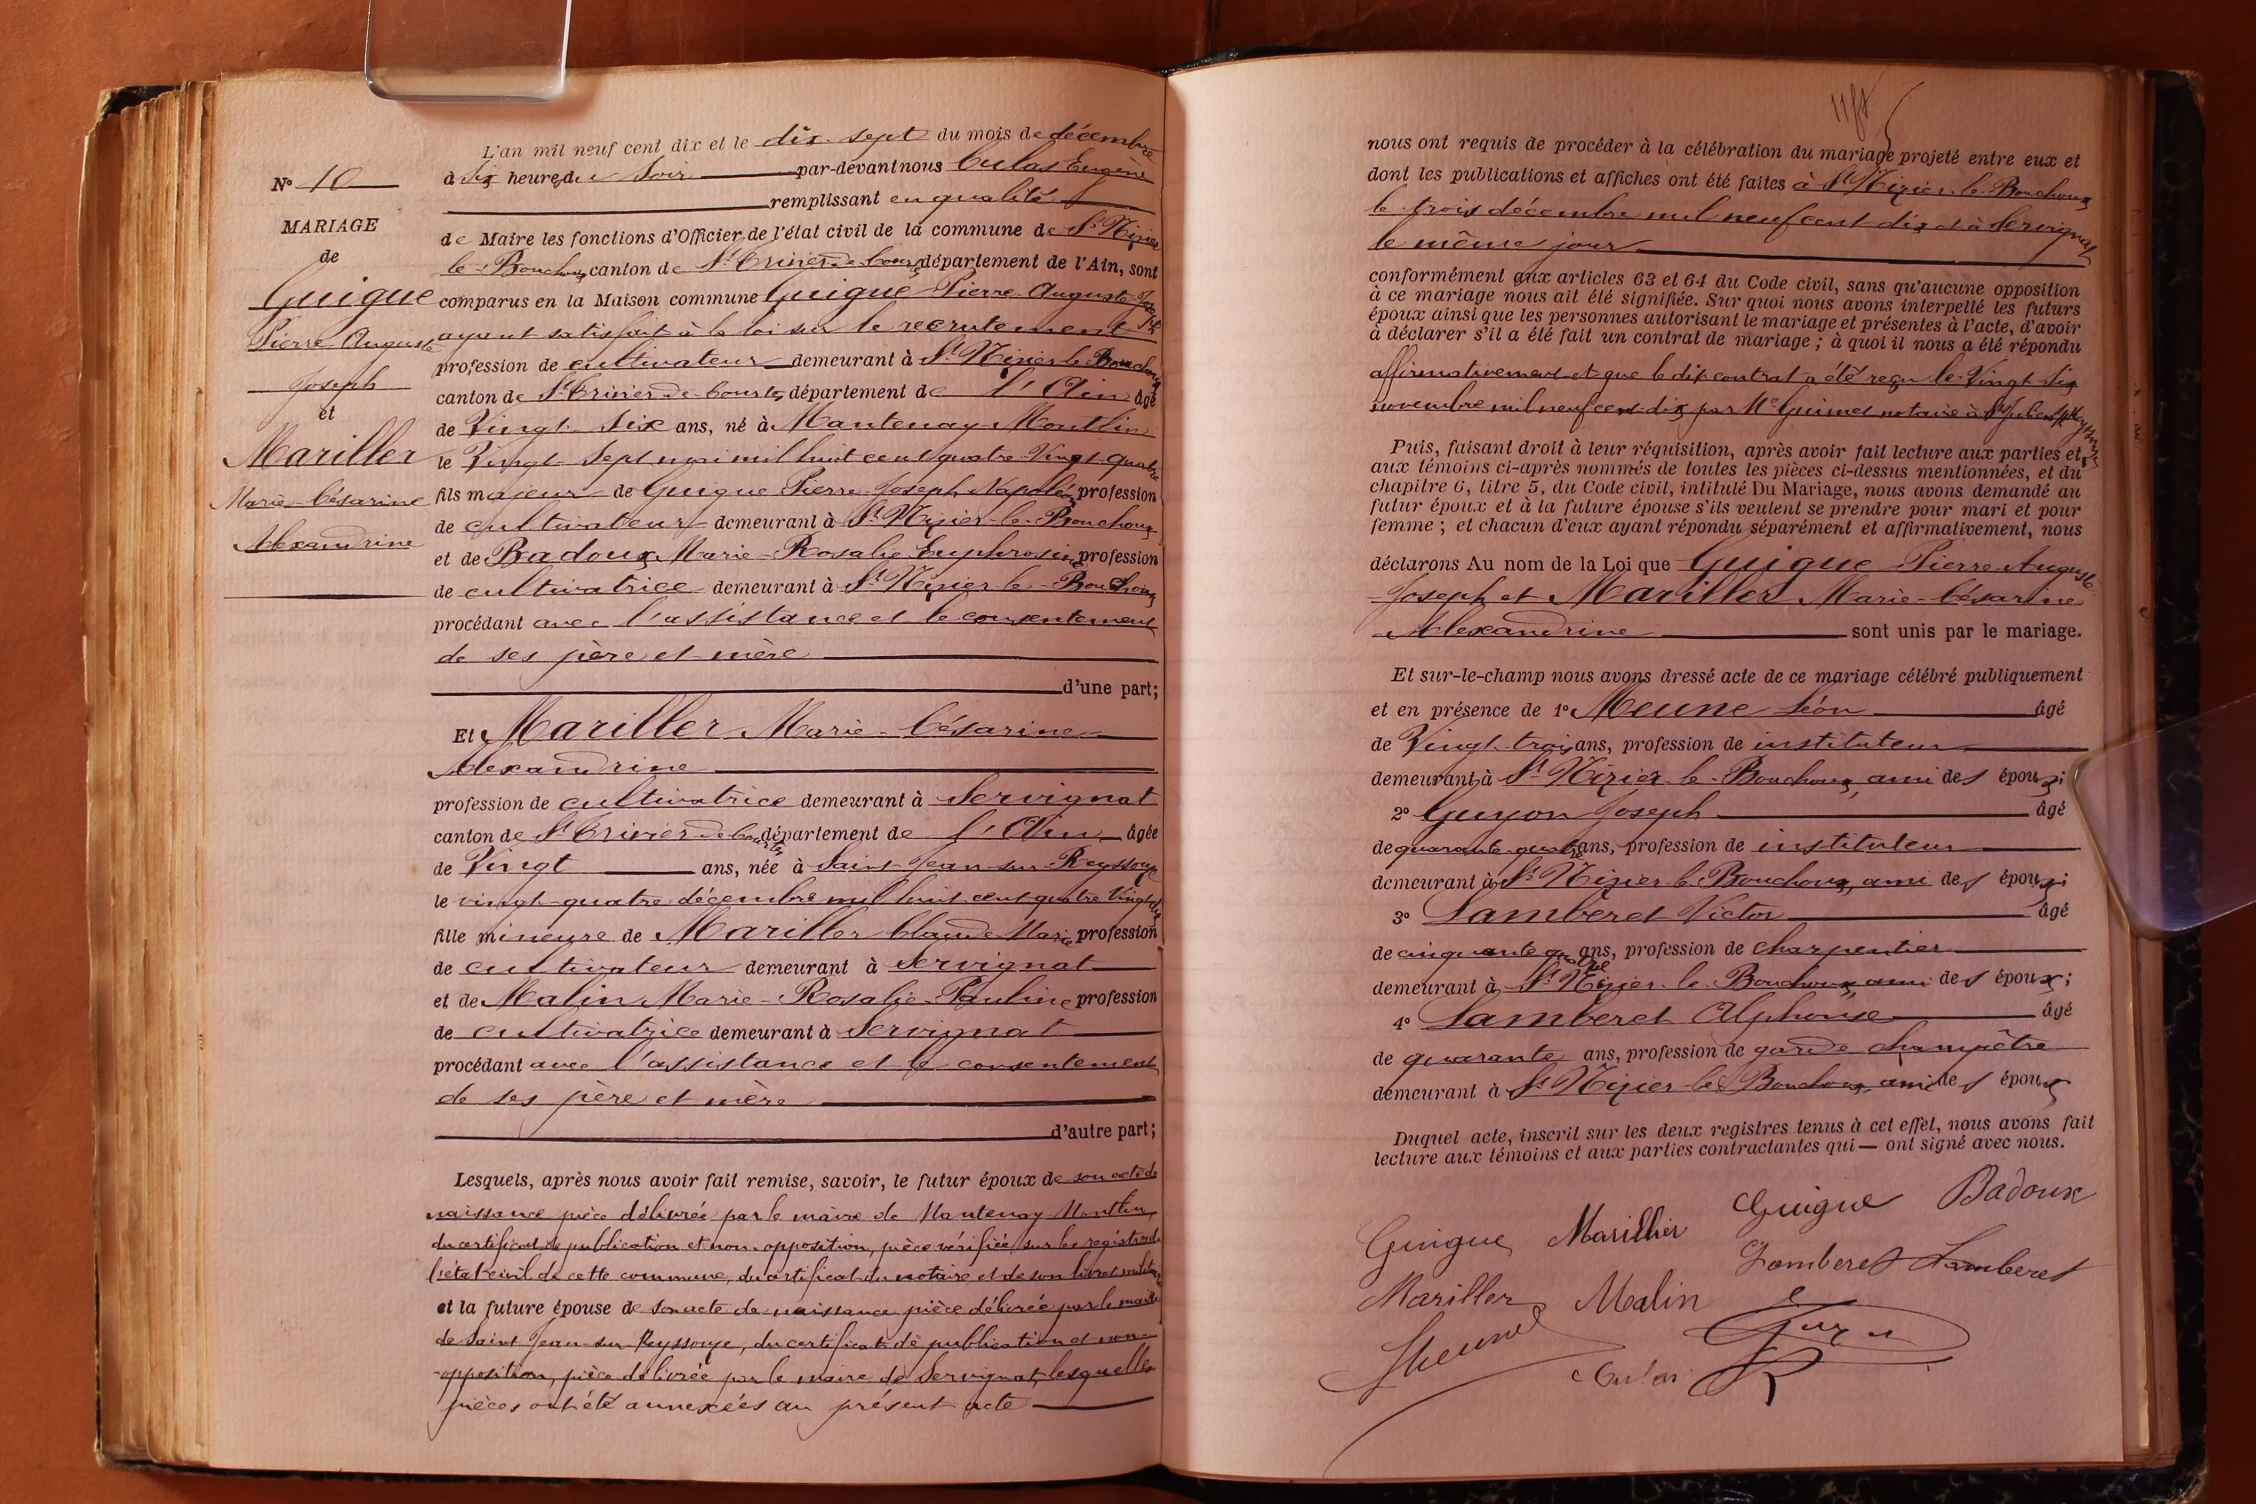 N° 10
MARIAGE
de
Guigue
Pierre Auguste
Joseph
et
Mariller
Marie-Césarine
Alexandrine
L'an mil neuf cent dix et le dix-sept du mois de décembre
à six heures du soir par-devant nous Culas Eugène
remplissant en qualité
de Maire les fonctions d'Officier de l'état civil de la commune de St Nizier
le-Bouchoux canton de St Trivier de Courtes département de l'Ain, sont
comparus en la Maison commune Guigue Pierre Auguste Joseph
ayant satisfait à la loi sur le recrutement
profession de cultivateur demeurant à St Nizier-le-Bouchoux
canton de St Trivier-de-Courtes département de l'Ain âgé
de Vingt-six ans, né à Mantenay-Montlin
le Vingt-sept mai mil huit cent quatre-Vingt-quatre
fils majeur de Guigue Pierre Joseph Napoléon profession
de cultivateur demeurant à St Nizier-le-Bouchoux
et de Badoux Marie-Rosalie Euphrosine profession
de cultivatrice demeurant à St Nizier-le-Bouchoux
procédant avec l'assistance et le consentement
de ses père et mère
d'une part;
Et Mariller Marie-Césarine
Alexandrine
profession de cultivatrice demeurant à Servignat
canton de St Trivier de Courtes département de l'Ain âgée
de Vingt ans, née à Saint-Jean-sur-Reyssouze
le vingt-quatre décembre mil huit cent quatre Vingt dix
fille mineure de Mariller Claude Marie profession
de cultivateur demeurant à Servignat
et de Malin Marie-Rosalie-Pauline profession
de cultivatrice demeurant à Servignat
procédant avec l'assistance et le consentement
de ses père et mère
d'autre part;
Lesquels, après nous avoir fait remise, savoir, le futur époux de son acte de
naissance pièce délivrée par le maire de Mantenay-Montlin,
du certificat de publication et non-opposition, pièce vérifiée sur les registres de
l'état-civil de cette commune, du certificat du notaire et de son livret militaire
et la future épouse de son acte de naissance pièce délivrée par le maire
de Saint-Jean-sur-Reyssouze, du certificat de publication et non-
opposition, pièce délivrée par le maire de Servignat, lesquelles
pièces ont été annexées au présent acte
nous ont requis de procéder à la célébration du mariage projeté entre eux et
dont les publications et affiches ont été faites à St Nizier-le-Bouchoux
le trois décembre mil neuf cent dix et à Servignat
le même jour
conformément aux articles 63 et 64 du Code civil, sans qu'aucune opposition
à ce mariage nous ait été signifiée. Sur quoi nous avons interpellé les futurs
époux ainsi que les personnes autorisant le mariage et présentes à l'acte, d'avoir
à déclarer s'il a été fait un contrat de mariage ; à quoi il nous a été répondu
affirmativement et que le dit contrat a été reçu le Vingt-six
novembre mil neuf cent dix par Me Guimet notaire à St Julien s/Reyssouze
Puis, faisant droit à leur réquisition, après avoir fait lecture aux parties et
aux témoins ci-après nommés de toutes les pièces ci-dessus mentionnées, et du
chapitre 6, titre 5, du Code civil, intitulé Du Mariage, nous avons demandé au
futur époux et à la future épouse s'ils veulent se prendre pour mari et pour
femme ; et chacun d'eux ayant répondu séparément et affirmativement, nous
déclarons Au nom de la Loi que Guigue Pierre Auguste
Joseph et Mariller Marie-Césarine
Alexandrine sont unis par le mariage.
Et sur-le-champ nous avons dressé acte de ce mariage célébré publiquement
et en présence de 1° Meune Léon âgé
de Vingt-trois ans, profession de instituteur
demeurant à St Nizier-le-Bouchoux, ami des époux;
2° Guyon Joseph âgé
de quarante-quatre ans, profession de instituteur
demeurant à St Nizier-le-Bouchoux, ami des époux;
3° Lamberet Victor âgé
de cinquante quatre ans, profession de charpentier
demeurant à St Nizier-le-Bouchoux ami des époux;
4° Lamberet Alphonse âgé
de quarante ans, profession de garde champêtre
demeurant à St Nizier-le-Bouchoux, ami des époux
Duquel acte, inscrit sur les deux registres tenus à cet effet, nous avons fait
lecture aux témoins et aux parties contractantes qui — ont signé avec nous.
Guigue Marillier Guigue Badoux
Lamberet Lamberet
Mariller Malin
Meune Culas